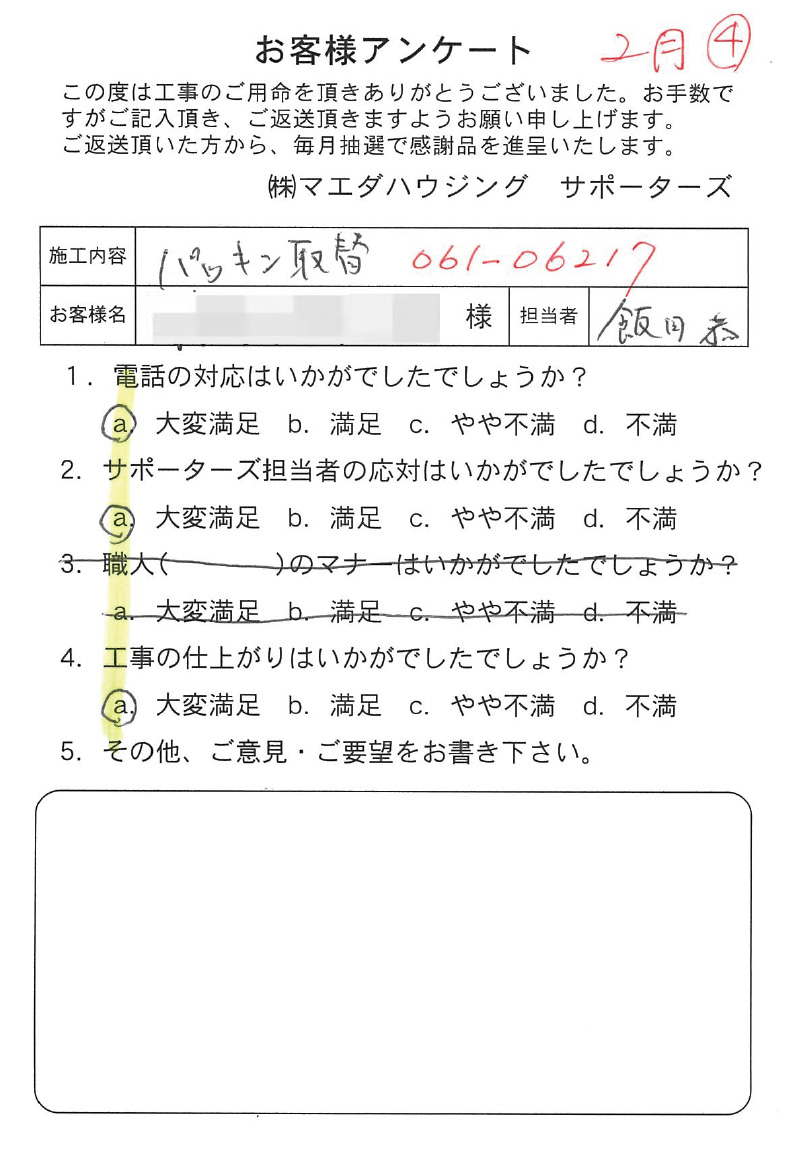 お客様アンケート 2月 ④
この度は工事のご用命を頂きありがとうございました。お手数で
すがご記入頂き、ご返送頂きますようお願い申し上げます。
ご返送頂いた方から、毎月抽選で感謝品を進呈いたします。
㈱マエダハウジング　サポーターズ
施工内容 パッキン取替 061-06217
お客様名 様 担当者 飯田 恭
1. 電話の対応はいかがでしたでしょうか？
a. 大変満足 b. 満足 c. やや不満 d. 不満
2. サポーターズ担当者の応対はいかがでしたでしょうか？
a. 大変満足 b. 満足 c. やや不満 d. 不満
3. 職人(　　　　)のマナーはいかがでしたでしょうか？
a. 大変満足 b. 満足 c. やや不満 d. 不満
4. 工事の仕上がりはいかがでしたでしょうか？
a. 大変満足 b. 満足 c. やや不満 d. 不満
5. その他、ご意見・ご要望をお書き下さい。